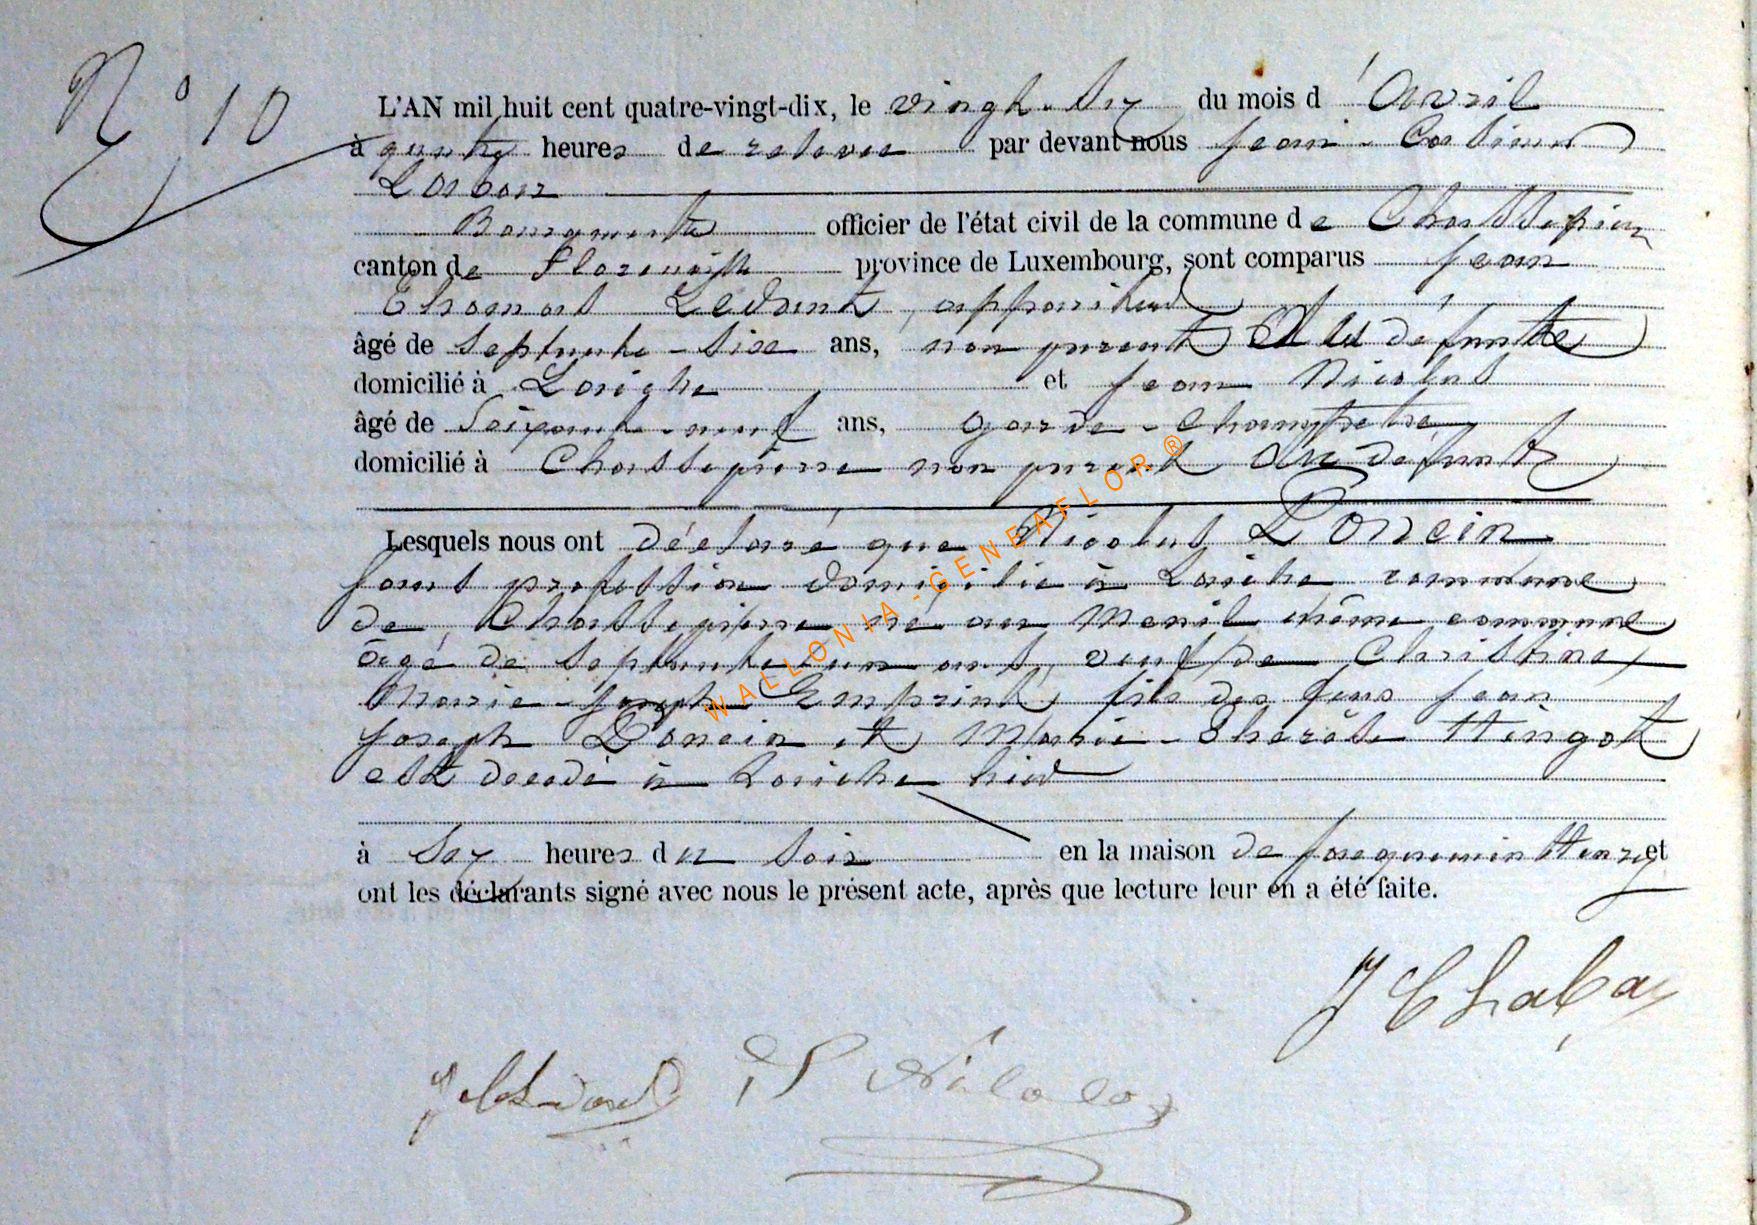 N° 10
L'AN mil huit cent quatre-vingt-dix, le vingt-six du mois d'Avril
à quatre heures de relevée par devant nous Jean-
Bourgmestre officier de l'état civil de la commune de Chassepierre
canton de Florenville province de Luxembourg, sont comparus Jean
Thomas Ledant, appariteur
âgé de septante-six ans, non parent du défunt
domicilié à Laiche et Jean Nicolas
âgé de Soixante-neuf ans, garde-champêtre
domicilié à Chassepierre non parent au défunt
Lesquels nous ont déclaré que Nicolas Poncin
sans profession domicilié à Laiche commune
de Chassepierre né au Menil même commune
âgé de septante un ans, veuf de Christine
Marie-Joseph fils des feus Jean
Joseph Poncin et Marie-Thérèse Hingot
est decedé à Laiche hier
à six heures du soir en la maison de Jacquemin Henry et
ont les déclarants signé avec nous le présent acte, après que lecture leur en a été faite.
WALLONIA-GENEAFLOR®